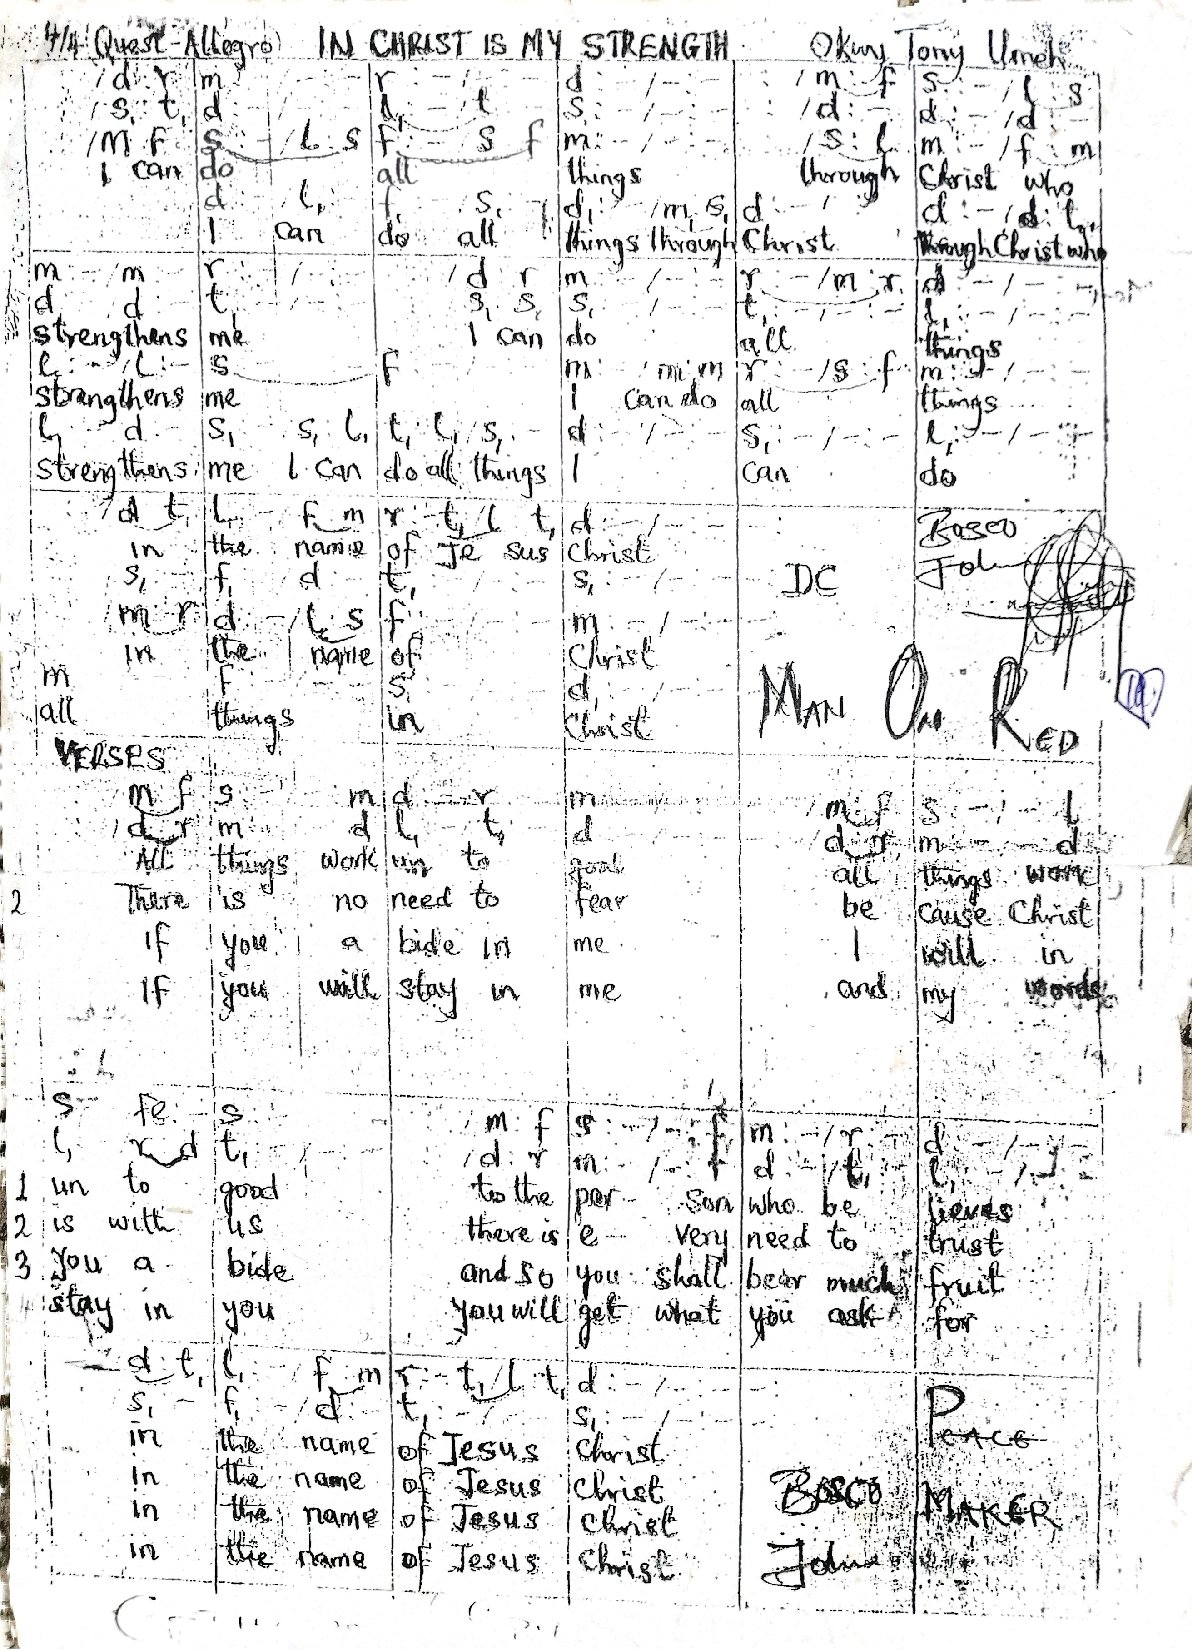 4/4 Quasi-Allegro IN CHRIST IS MY STRENGTH Okwy Tony Umeh
/d : r m : - / - : - r : - / - : - d : - / - : - : / m : f s : - / l : s
/s, : t, d : - / - : - l, : - / t, d : - / - : - : / d : - d : - / d : -
/m : f s : - / l : s f : - / s : f m : - / - : - / s : l m : - / f : m
I can do all things through Christ who
d l, f, s, d, : - / m, s, d : - / d : - / d : l,
I can do all things through Christ through Christ who
m : - / m r : / - : - / d r m : - / - : - r : - / m : r d : - / - : -
d d t, s, s, s, : - / - : - t, : - / - : - l, : - / - : -
strengthens me I can do all things
l : - / l : - s f m : m : m r : - / s : f m : - / - : -
strengthens me I can do all things
l, d s, s, l, t, l, s, - d : - / - : - s, : - / - : - l, : - / - : -
strengthens me I can do all things I can do
/ d t, l, f m r : - t, / l, t, d : - / - : - Bosco
in the name of Je sus Christ John
s, f, d t, s, : - / - : - DC
m r d : - / l, s f m : - / - : -
in the name of Christ
m f s d, : - / - : -
all things in Christ
MAN ON RED
19
VERSES
m f s m d - r m / m : f s : - / - l
/ d r m d l, - t, d / d : r m : - d
All things work un to good all things work
2 There is no need to fear be cause Christ
If you a bide in me I will in
If you will stay in me and my words
s fe s m : f s : - / - : f m : - / r d : - / - : -
l, r d t, / d : r m : - / - : f d : - / t, l, : - / - : -
1 un to good to the per son who be lieves
2 is with us there is e very need to trust
3 you a bide and so you shall bear much fruit
stay in you you will get what you ask for
d t, l, : - / f m r : - t, / l t, d : - / - : -
s, - f, / d t, s, : - / - : -
in the name of Jesus Christ
in the name of Jesus Christ
in the name of Jesus Christ
in the name of Jesus Christ
Bosco
John
Peace
MAKER